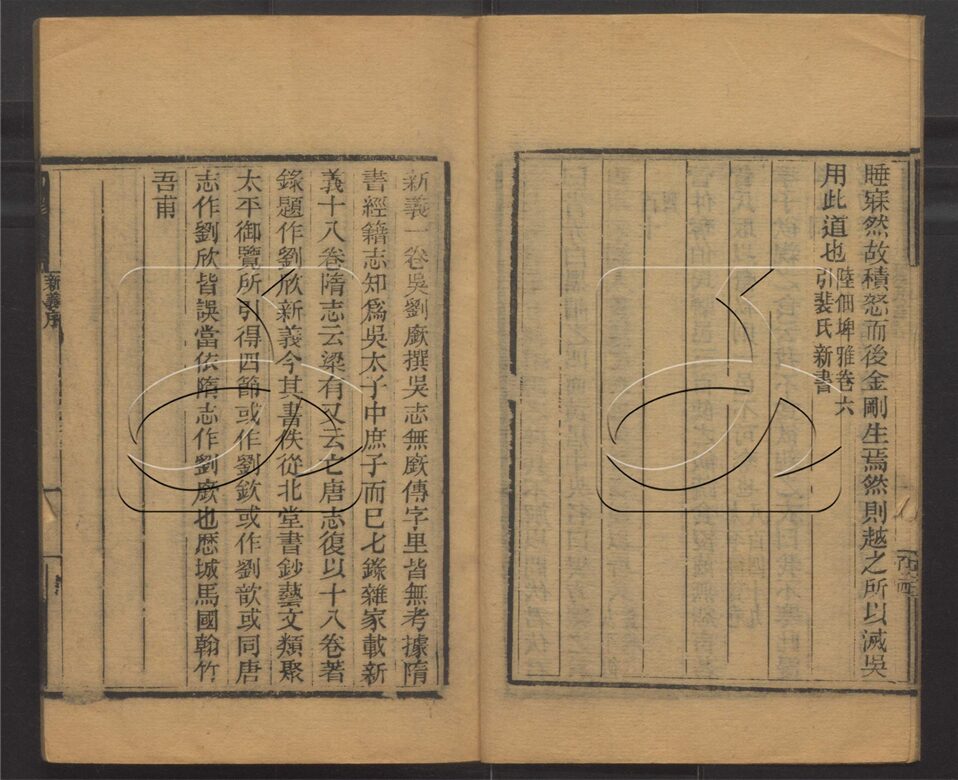 睡寐然故積怒而後金剛生焉然則越之所以滅吳
用此道也
陸佃埤雅卷六
引裴氏新書
新義一卷吳劉廞撰吳志無廞傳字里皆無考據隋
書經籍志知爲吳太子中庶子而已七錄雜家載新
義十八卷隋志云梁有又云亡唐志復以十八卷著
錄題作劉欣新義今其書佚從北堂書鈔藝文類聚
太平御覽所引得四節或作劉欽或作劉歆或同唐
志作劉欣皆誤當依隋志作劉廞也歷城馬國翰竹
吾甫
新義序